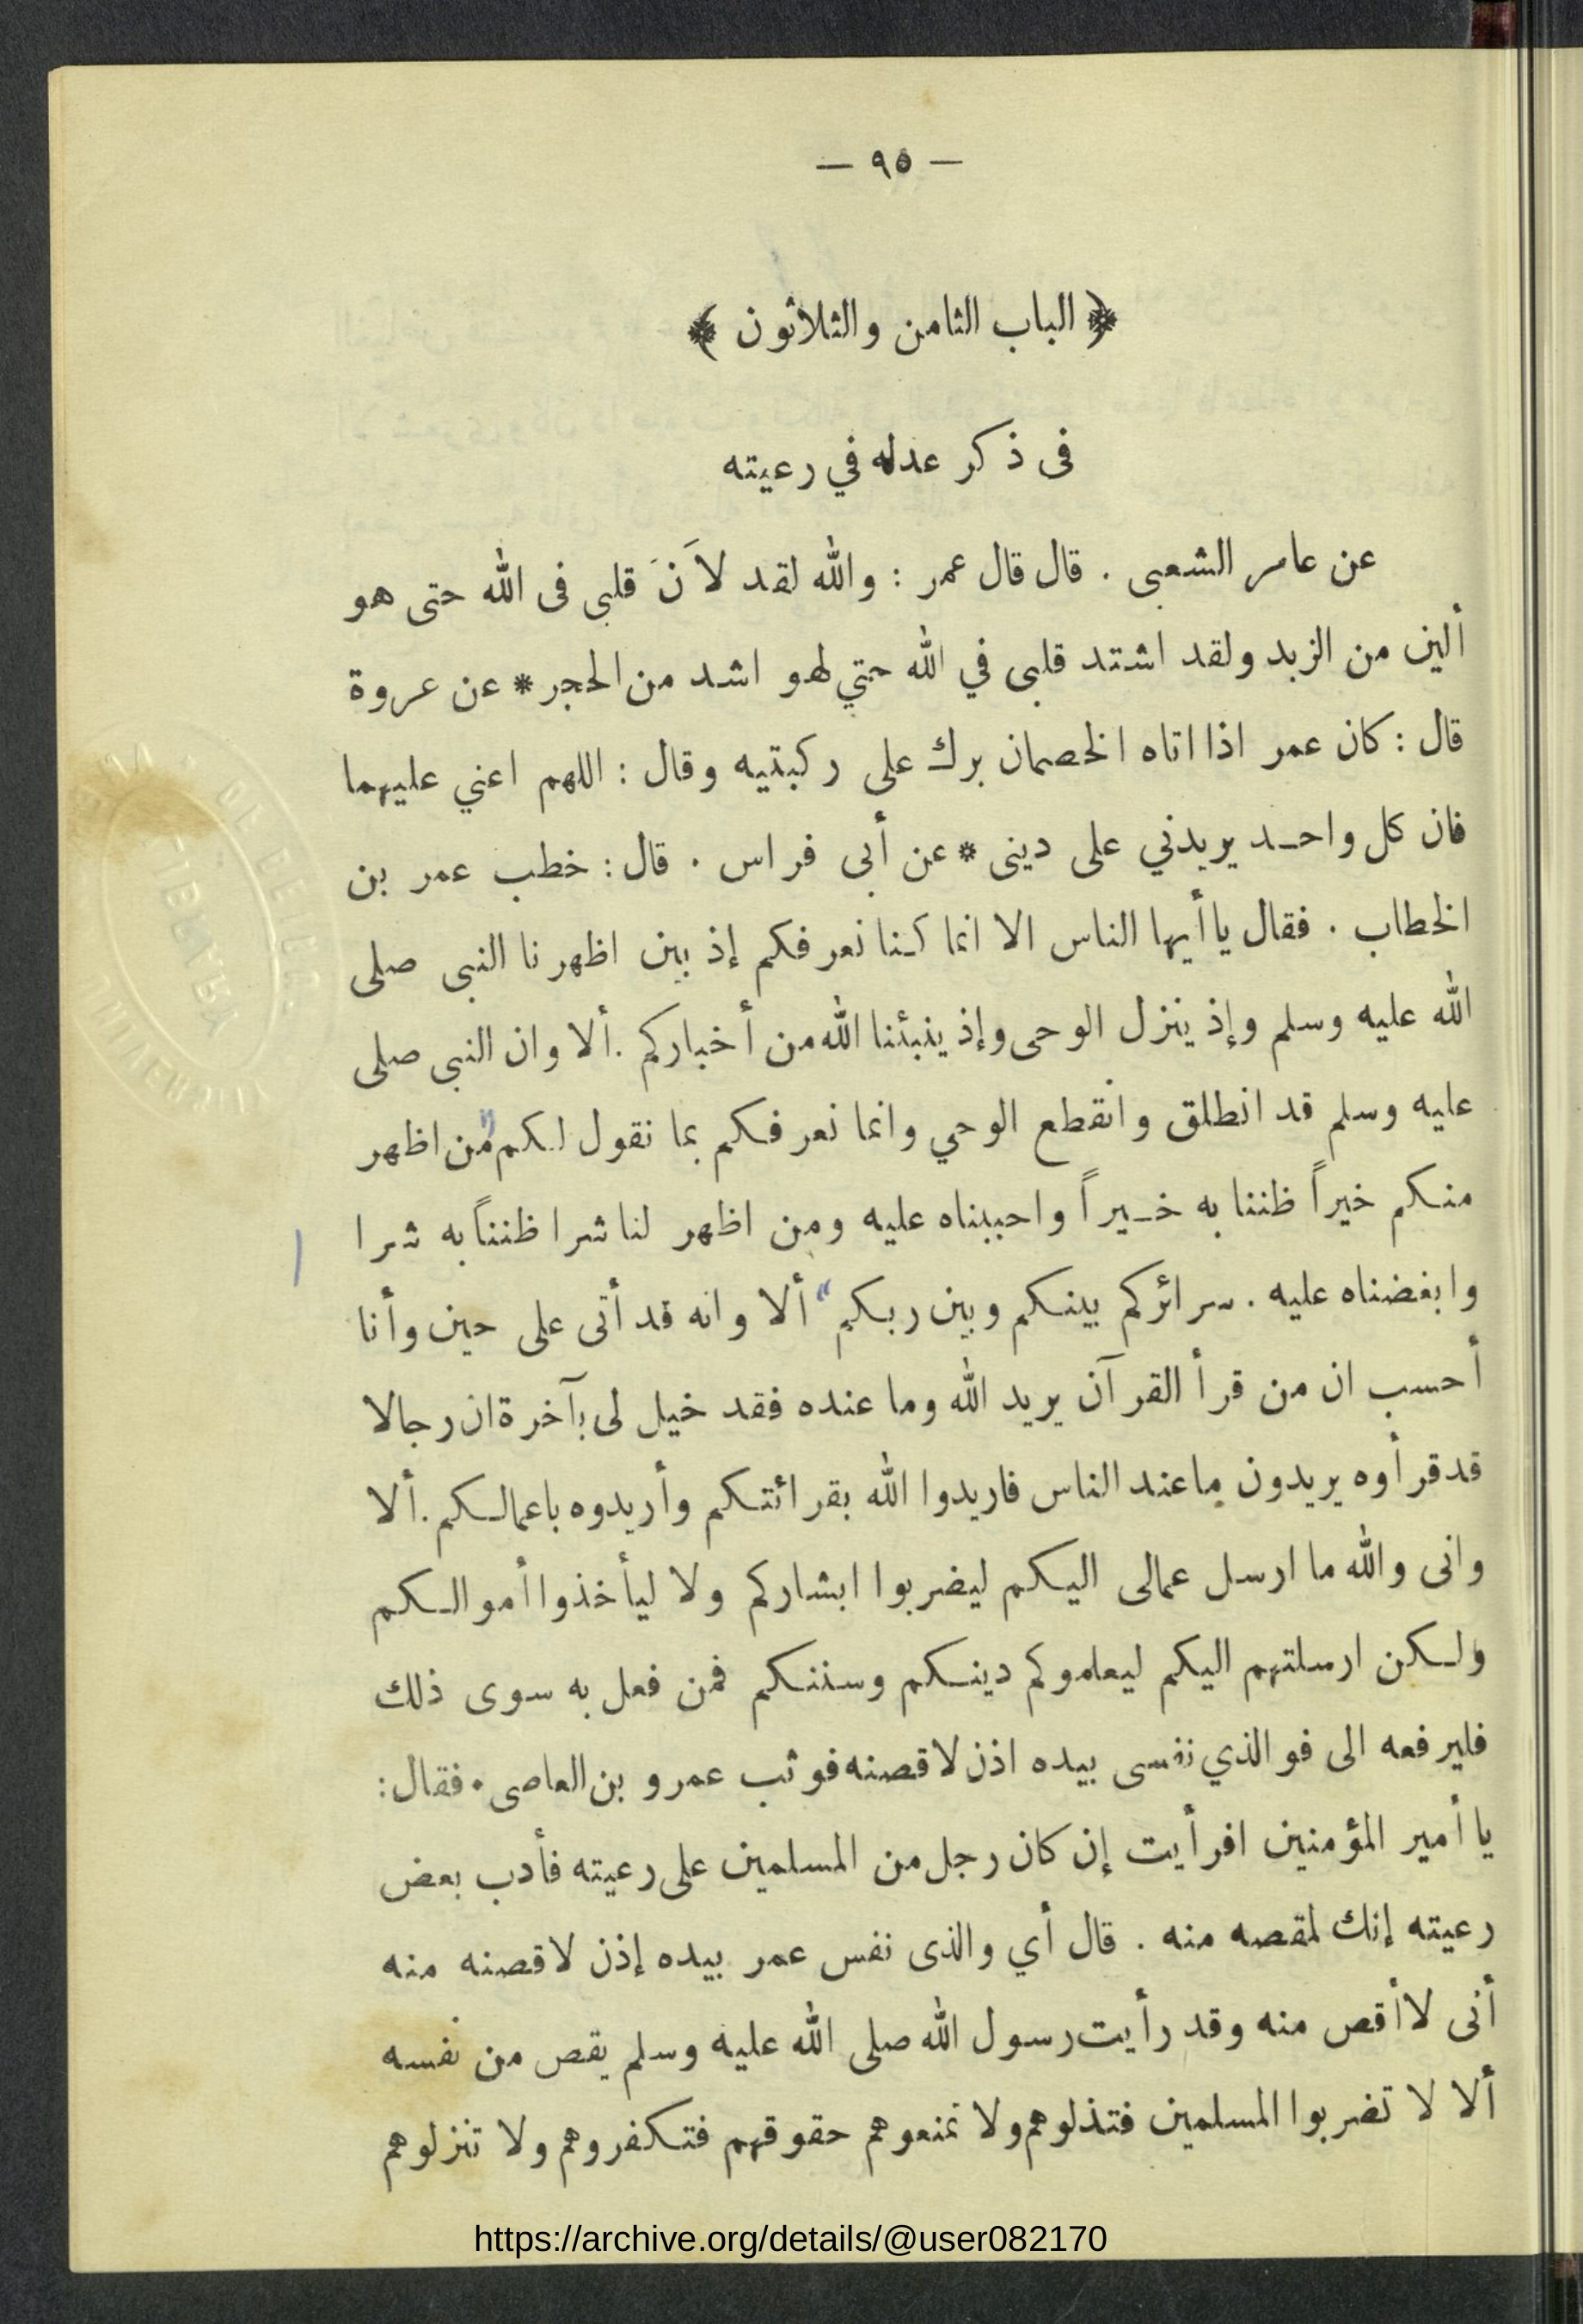 — ٩٥ —
﴿ الباب الثامن والثلاثون ﴾
فى ذكر عدله في رعيته
عن عامر الشعبى . قال قال عمر : والله لقد لاَنَ قلبى فى الله حتى هو
ألين من الزبد ولقد اشتد قلبى في الله حتي لهو اشد من الحجر * عن عروة
قال : كان عمر اذا اتاه الخصمان برك على ركبتيه وقال : اللهم اعني عليهما
فان كل واحد يريدني على دينى * عن أبى فراس . قال : خطب عمر بن
الخطاب . فقال يا أيها الناس الا انما كنا نعرفكم إذ بين اظهرنا النبى صلى
الله عليه وسلم وإذ ينزل الوحى وإذ ينبئنا الله من أخباركم . ألا وان النبى صلى
عليه وسلم قد انطلق وانقطع الوحي وانما نعرفكم بما نقول لكم " من اظهر
منكم خيراً ظننا به خيراً واحببناه عليه ومن اظهر لنا شرا ظنناً به شرا
وابغضناه عليه . سرائركم بينكم وبين ربكم " ألا وانه قد أتى على حين وأنا
أحسب ان من قرأ القرآن يريد الله وما عنده فقد خيل لى بآخرة ان رجالا
قد قرأوه يريدون ما عند الناس فاريدوا الله بقرائتكم وأريدوه باعمالكم . ألا
وانى والله ما ارسل عمالى اليكم ليضربوا ابشاركم ولا ليأخذوا أموالكم
ولكن ارسلتهم اليكم ليعلموكم دينكم وسننكم فمن فعل به سوى ذلك
فليرفعه الى فو الذي نفسى بيده اذن لاقصنه فوثب عمرو بن العاصى . فقال :
يا أمير المؤمنين افرأيت إن كان رجل من المسلمين على رعيته فأدب بعض
رعيته إنك لمقصه منه . قال أي والذى نفس عمر بيده إذن لاقصنه منه
أنى لا أقص منه وقد رأيت رسول الله صلى الله عليه وسلم يقص من نفسه
ألا لا تضربوا المسلمين فتذلوهم ولا تمنعوهم حقوقهم فتكفروهم ولا تنزلوهم
https://archive.org/details/@user082170